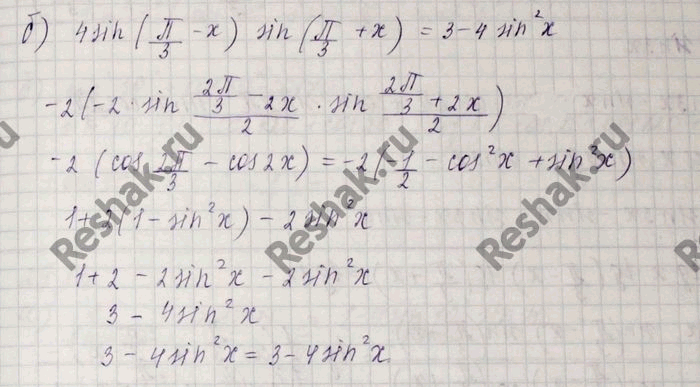 б) 4 sin (π/3 - x) sin (π/3 + x) = 3 - 4 sin²x
-2 (-2 · sin (2π/3 - 2x)/2 · sin (2π/3 + 2x)/2)
-2 (cos 2π/3 - cos 2x) = -2 (-1/2 - cos²x + sin²x)
1 + 2 (1 - sin²x) - 2 sin²x
1 + 2 - 2 sin²x - 2 sin²x
3 - 4 sin²x
3 - 4 sin²x = 3 - 4 sin²x
Reshak.ru
Reshak.ru
Reshak.ru